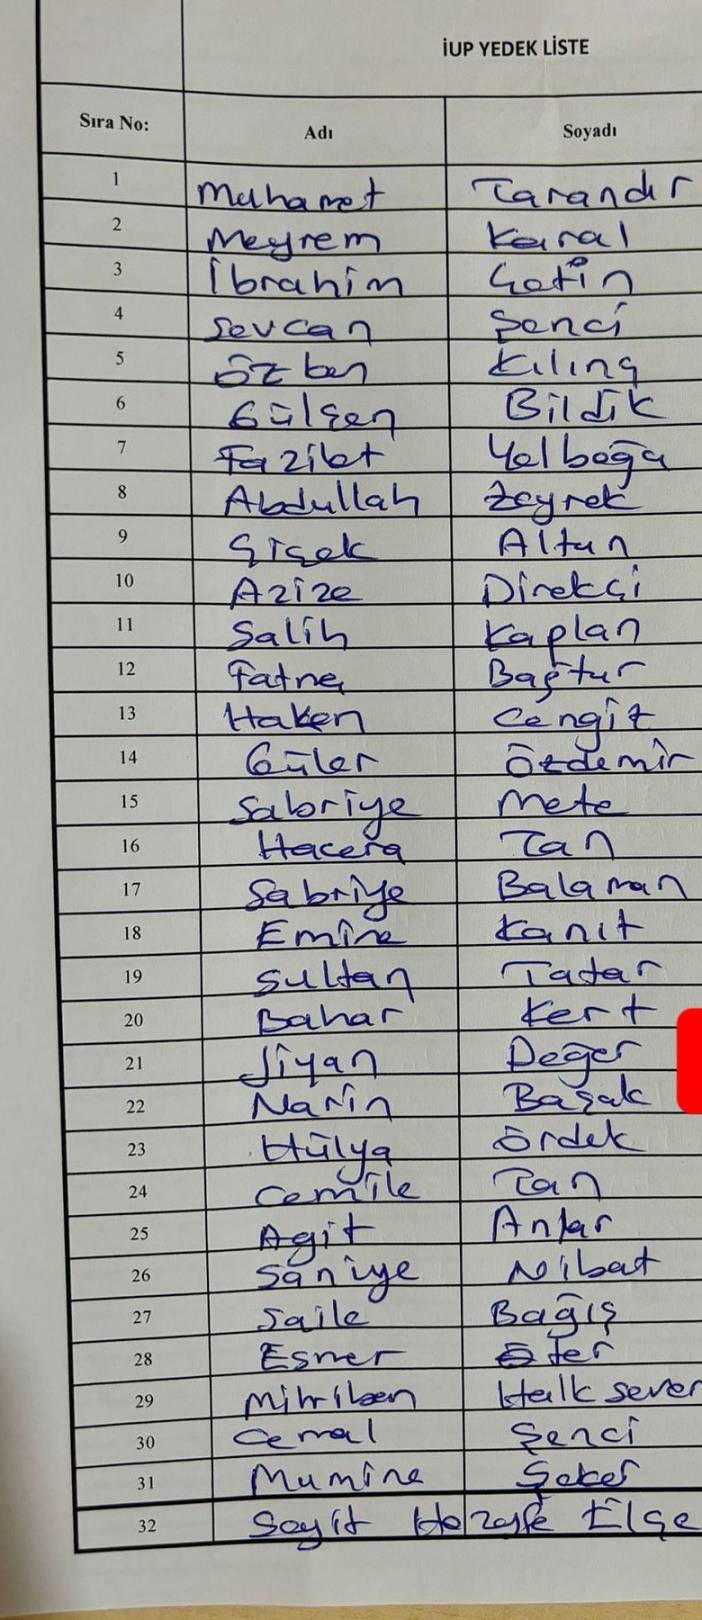 İUP YEDEK LİSTE
Sıra No: Adı Soyadı
1 Muhamet Tarandır
2 Meyrem Karal
3 İbrahim Çetin
4 Sevcan Şenci
5 Özben Kılınç
6 Gülşen Bildik
7 Fazilet Yelboğa
8 Abdullah Zeyrek
9 Çiçek Altun
10 Azize Direkçi
11 Salih Kaplan
12 Fatma Baştur
13 Haken Cengiz
14 Güler Özdemir
15 Sabriye Mete
16 Hacera Tan
17 Sabriye Balaman
18 Emine Kanıt
19 Sultan Tatar
20 Bahar Kert
21 Jiyan Değer
22 Narin Başak
23 Hülya Ördek
24 Cemile Tan
25 Agit Anlar
26 Saniye Nibat
27 Saile Bağış
28 Esmer
29 Mihriben Halksever
30 Cemal Şenci
31 Mumine Şeker
32 Seyit Elçe